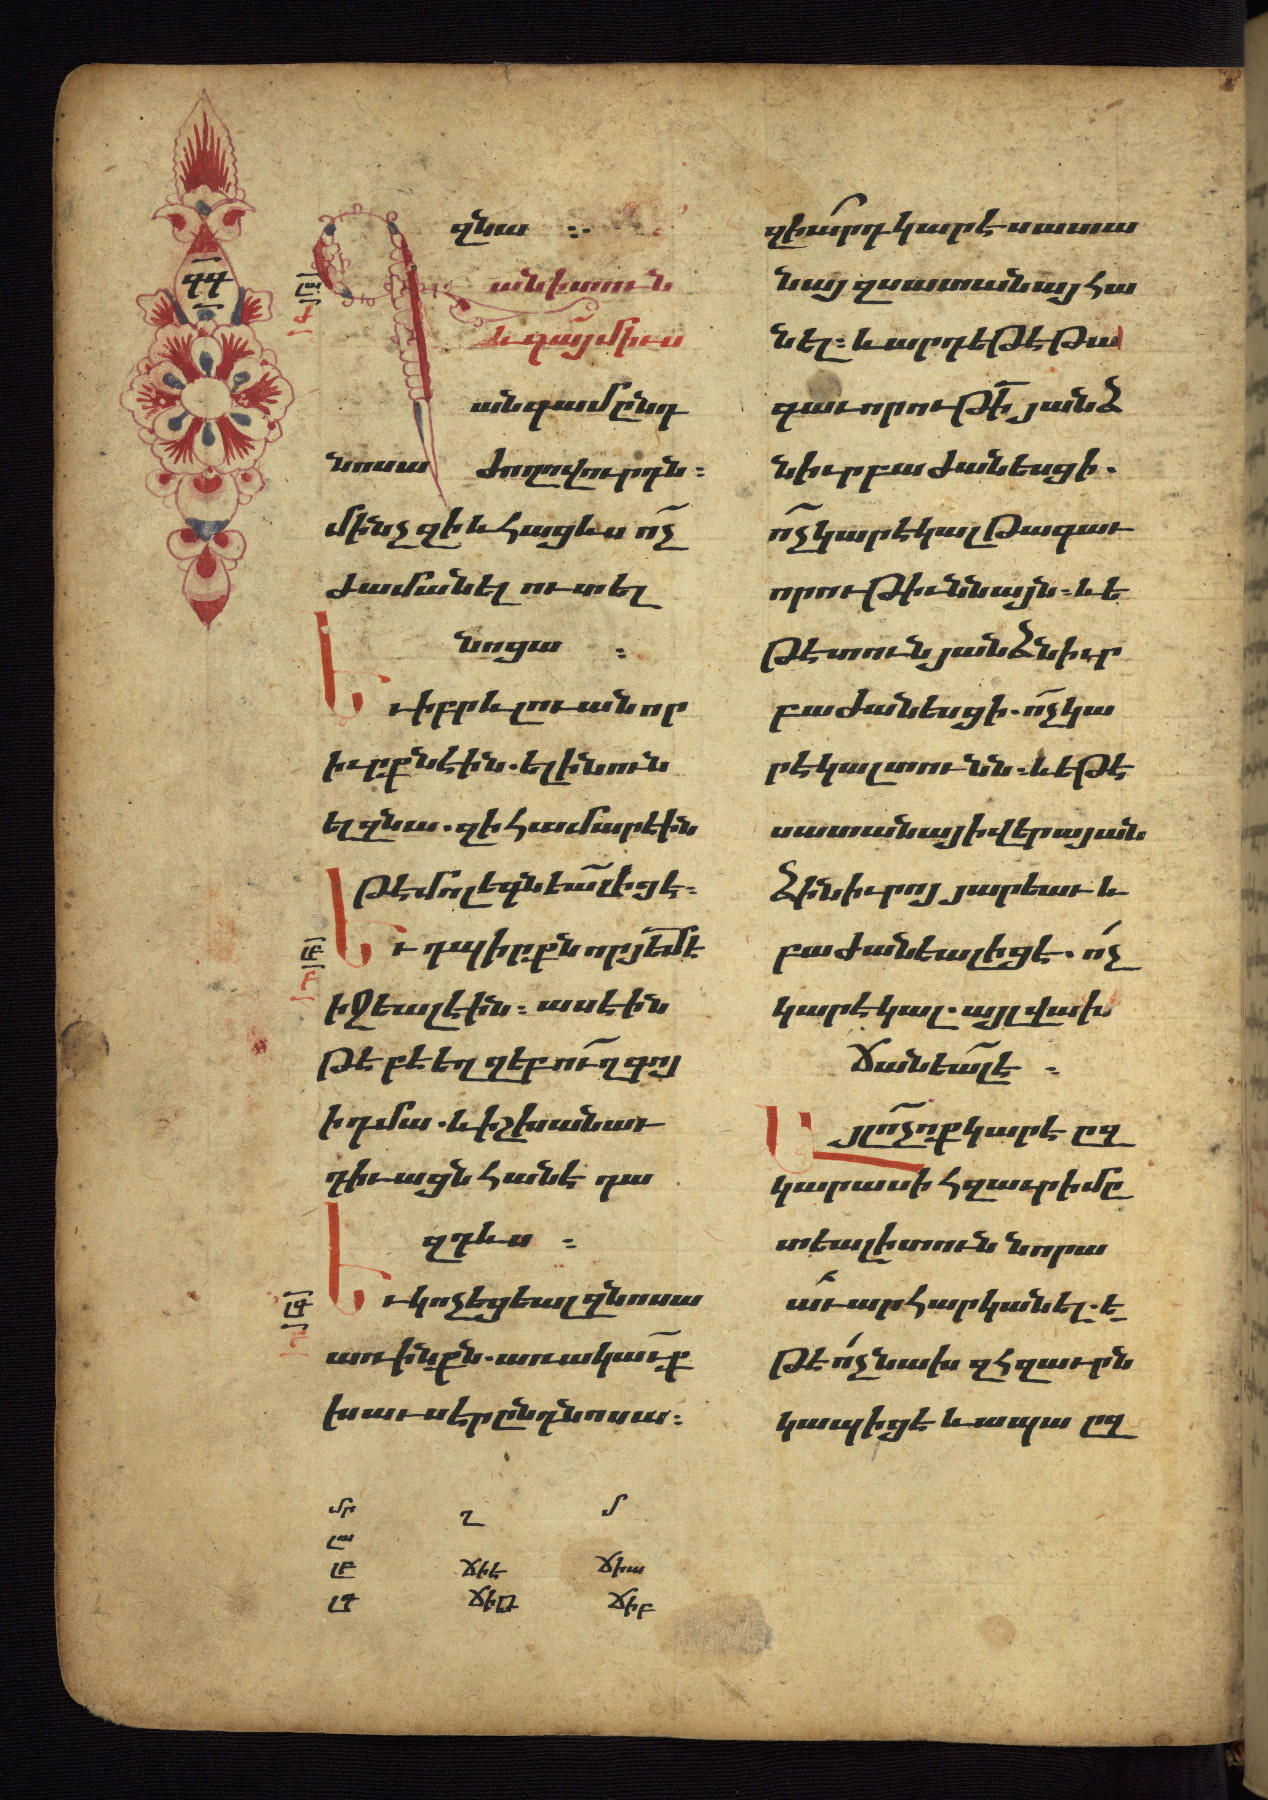 զնա ։
Գան ի տուն
և գա՜յ միւս
անգամ ընդ
նոսա ժողովուրդն ։
մինչ զի և հացևս ո՜չ
ժամանել ուտել
նոցա ։
Ււ իբրև լուան որ
իւրքն էին . ելին ուն
ել զնա . զի համարէին
թէ մոլեգնեա՜լ իցէ ։
Ււ դպիրքն որ յե՜մէ
իջեալ էին ։ ասէին
թէ բեեղզեբու՜ղ գոյ
ի դմա . և իշխանաւ
դիւացն հանէ դա
զդևս ։
Ււ կոչեցեալ զնոսա
առ ինքն . առակաւ՜ք
խաւսէր ընդ նոսա ։
զի՜արդ կարէ սատա
նայ զսատանայ հա
նել ։ և արդ եթէ թա
գաւորութի՜ յանձ
նիւր բաժանեսցի .
ո՜չ կարէ կալ թագաւ
որութիւնն այն ։ և ե
թէ տուն յանձն իւր
բաժանեսցի . ո՜չ կա
րէ կալ տունն ։ և եթէ
սատանայ ի վերայ ան
ձին իւրոյ յարեաւ և
բաժանեալ իցէ . ո՛չ
կարէ կալ . այլ վախ
ճանեա՜լ է ։
Այլ ո՜չ ոք կարէ ըզ
կարասի հզաւրի մը
տեալ ի տուն նորա
ա՜ւար հարկանել . ե
թէ ո՛չ նախ զհզաւրն
կապիցէ և ապա ըզ
գգ
լա
ժ
լբ
բ
լգ
բ
մր
ղ
մ
լա
լբ
ճիէ
ճիա
լգ
ճիը
ճիբ